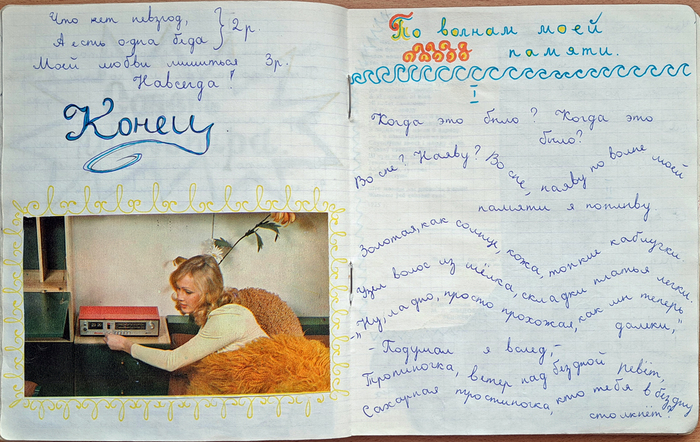 Что нет невзгод,
А есть одна беда } 2р.
Моей любви лишиться 3р.
Навсегда!
Конец
По волнам моей
памяти.
I
Когда это было? Когда это
было?
Во сне? Наяву? Во сне, наяву по волне моей
памяти я поплыву
Золотая, как солнце, кожа, тонкие каблучки
Узел волос из шёлка, складки платья легки
"Ну, ладно, просто прохожая, как мы теперь
далеки,"
- Подумал я вслед,-
Тропиночка, ветер над бездной ревёт,
Сахарная простиночка, кто тебя в бездну
столкнёт?